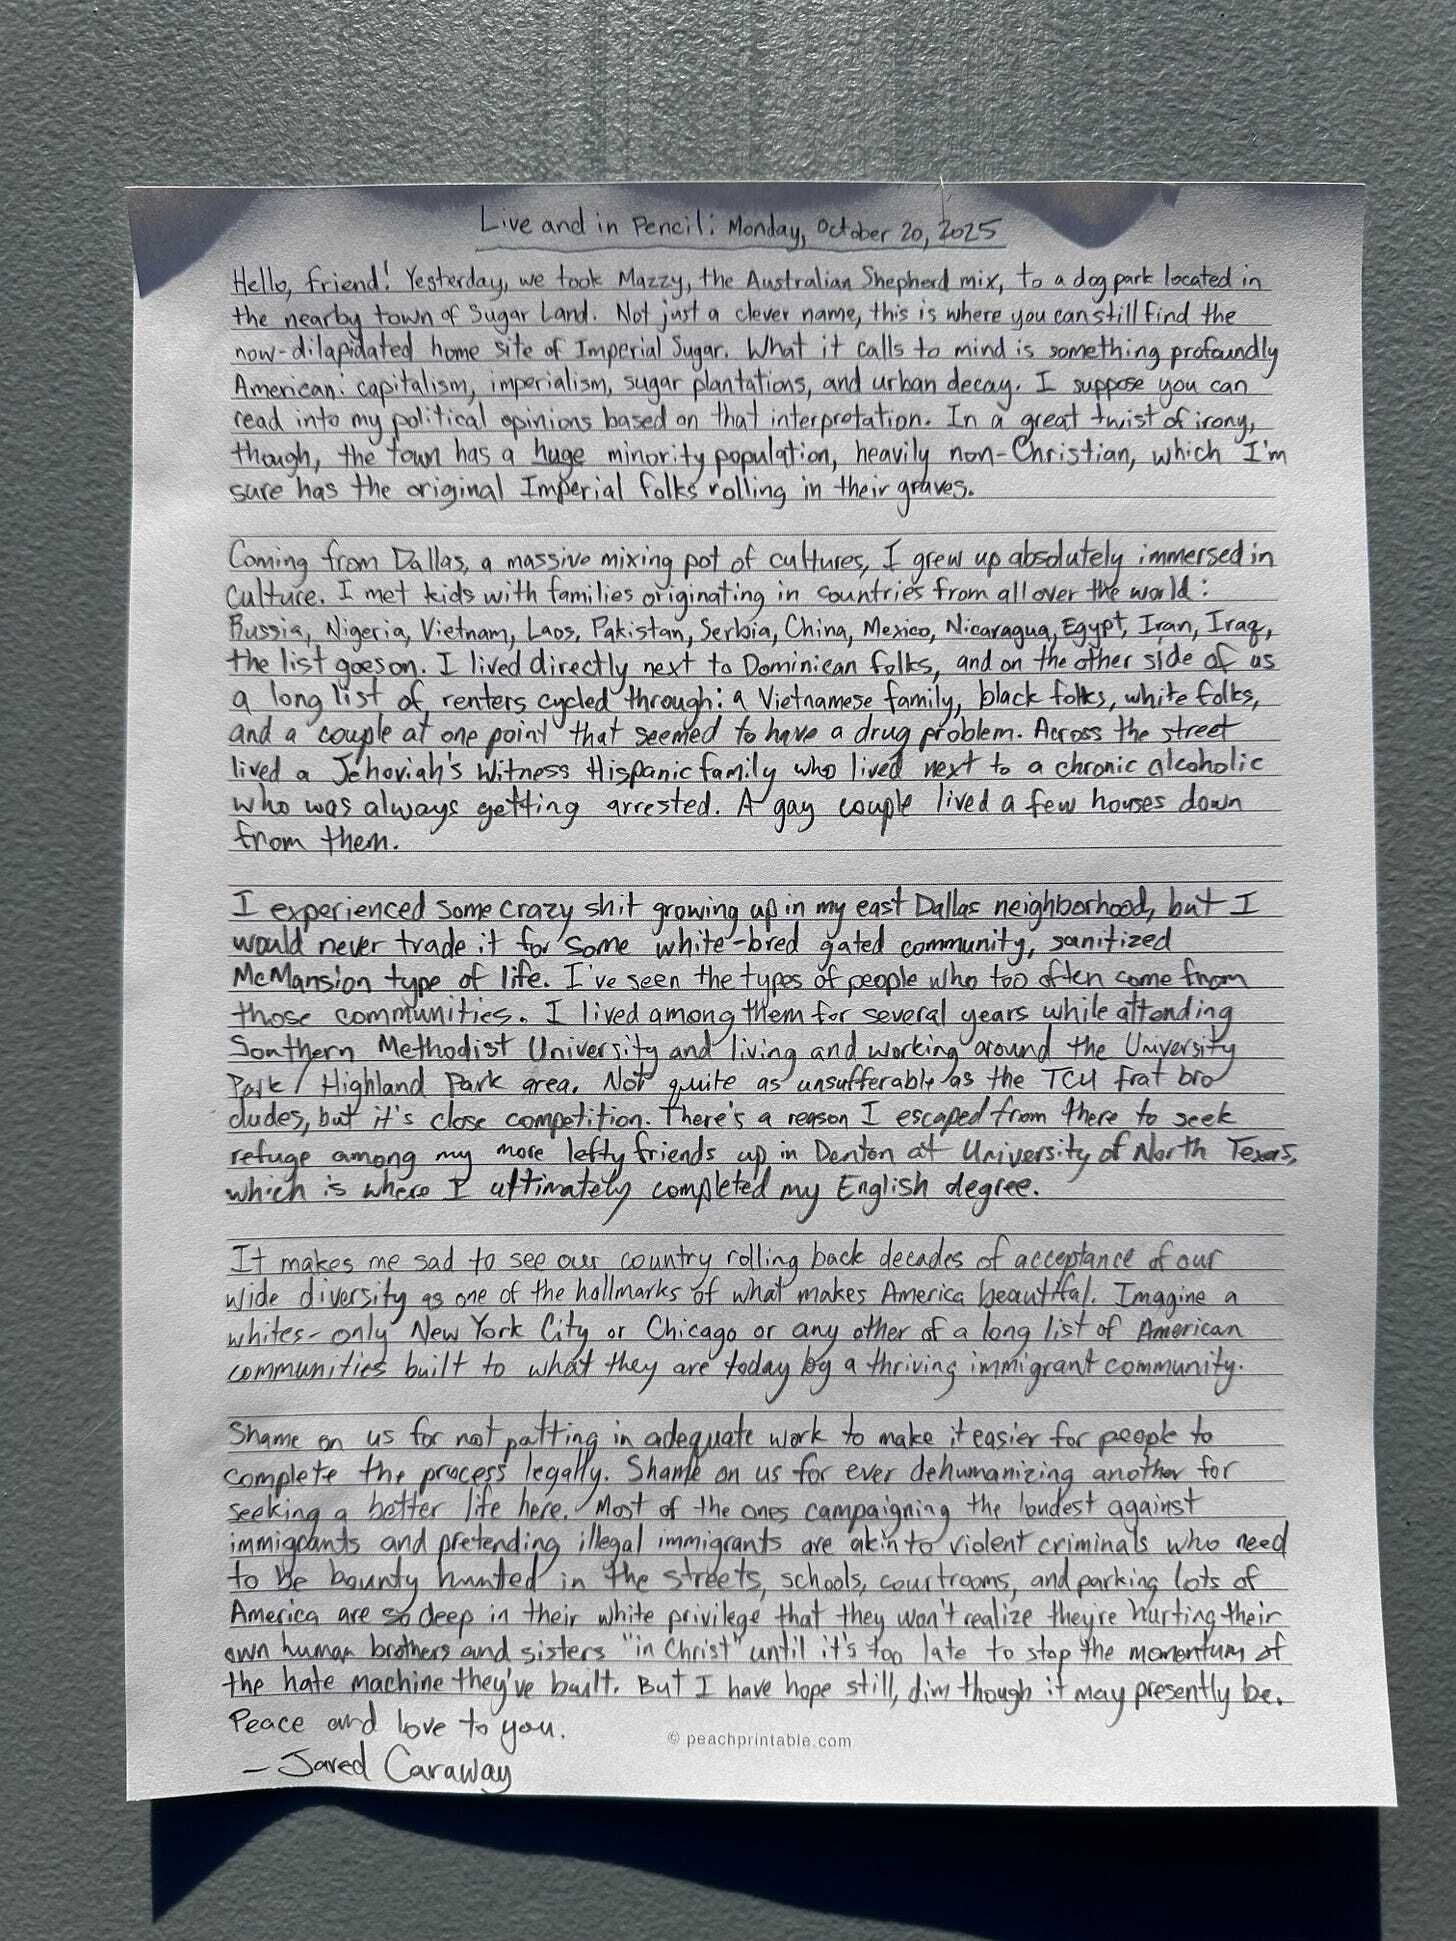 Live and in Pencil: Monday, October 20, 2025
Hello, friend! Yesterday, we took Mazzy, the Australian Shepherd mix, to a dog park located in
the nearby town of Sugar Land. Not just a clever name, this is where you can still find the
now-dilapidated home site of Imperial Sugar. What it calls to mind is something profoundly
American: capitalism, imperialism, sugar plantations, and urban decay. I suppose you can
read into my political opinions based on that interpretation. In a great twist of irony,
though, the town has a huge minority population, heavily non-Christian, which I'm
sure has the original Imperial folks rolling in their graves.
Coming from Dallas, a massive mixing pot of cultures, I grew up absolutely immersed in
culture. I met kids with families originating in countries from all over the world:
Russia, Nigeria, Vietnam, Laos, Pakistan, Serbia, China, Mexico, Nicaragua, Egypt, Iran, Iraq,
the list goes on. I lived directly next to Dominican folks, and on the other side of us
a long list of renters cycled through: a Vietnamese family, black folks, white folks,
and a couple at one point that seemed to have a drug problem. Across the street
lived a Jehoviah's Witness Hispanic family who lived next to a chronic alcoholic
who was always getting arrested. A gay couple lived a few houses down
from them.
I experienced some crazy shit growing up in my east Dallas neighborhood, but I
would never trade it for some white-bred gated community, sanitized
McMansion type of life. I've seen the types of people who too often come from
those communities. I lived among them for several years while attending
Southern Methodist University and living and working around the University
Park/Highland Park area. Not quite as unsufferable as the TCU frat bro
dudes, but it's close competition. There's a reason I escaped from there to seek
refuge among my more lefty friends up in Denton at University of North Texas,
which is where I ultimately completed my English degree.
It makes me sad to see our country rolling back decades of acceptance of our
wide diversity as one of the hallmarks of what makes America beautiful. Imagine a
whites-only New York City or Chicago or any other of a long list of American
communities built to what they are today by a thriving immigrant community.
Shame on us for not putting in adequate work to make it easier for people to
complete the process legally. Shame on us for ever dehumanizing another for
seeking a better life here. Most of the ones campaigning the loudest against
immigrants and pretending illegal immigrants are akin to violent criminals who need
to be bounty hunted in the streets, schools, courtrooms, and parking lots of
America are so deep in their white privilege that they won't realize they're hurting their
own human brothers and sisters "in Christ" until it's too late to stop the momentum of
the hate machine they've built. But I have hope still, dim though it may presently be.
Peace and love to you.
© peachprintable.com
– Jared Caraway